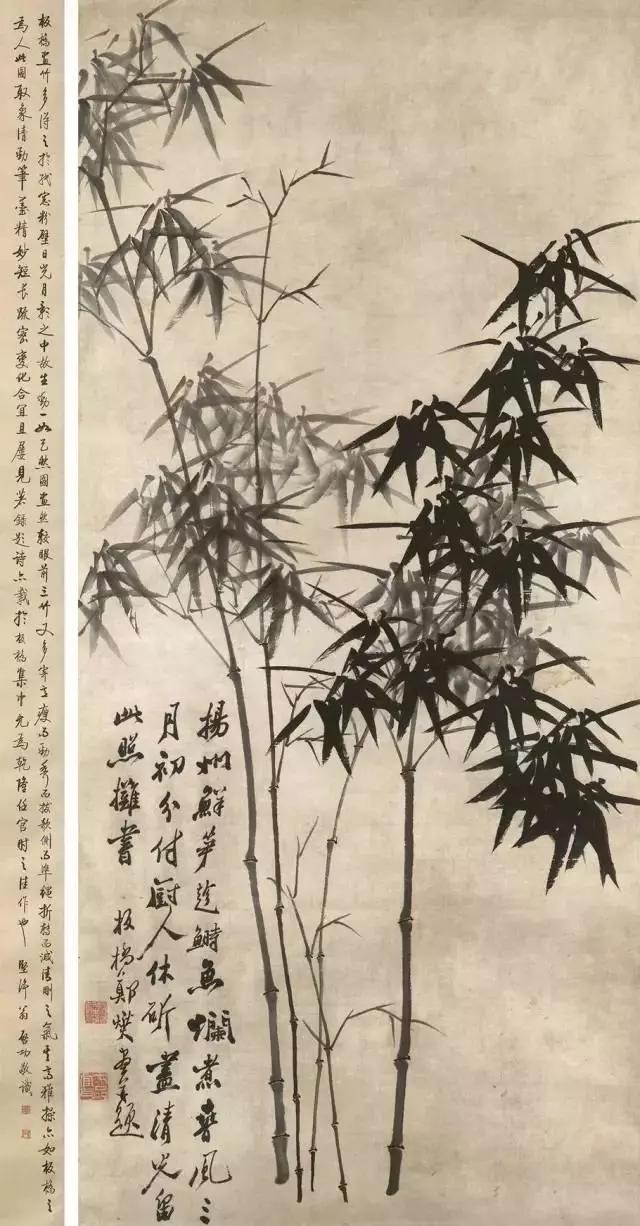 揚州鮮笋趁鰣魚爛煮春風三
月初分付廚人休斫盡清光留
此照攤書 板橋鄭燮畫并題
板橋畫竹多得之於紙窗粉壁日光月影之中故生動一如天然圖畫然較眼前之竹又多瘦而勁秀而拔欹側而準繩折轉而清剛之氣其高雅操亦如板橋之
為人此圖取象清勁筆墨精妙短長疏密變化合宜且屢見著錄題詩亦載於板橋集中尤為乾隆任官時之佳作也 堅淨翁啟功敬識